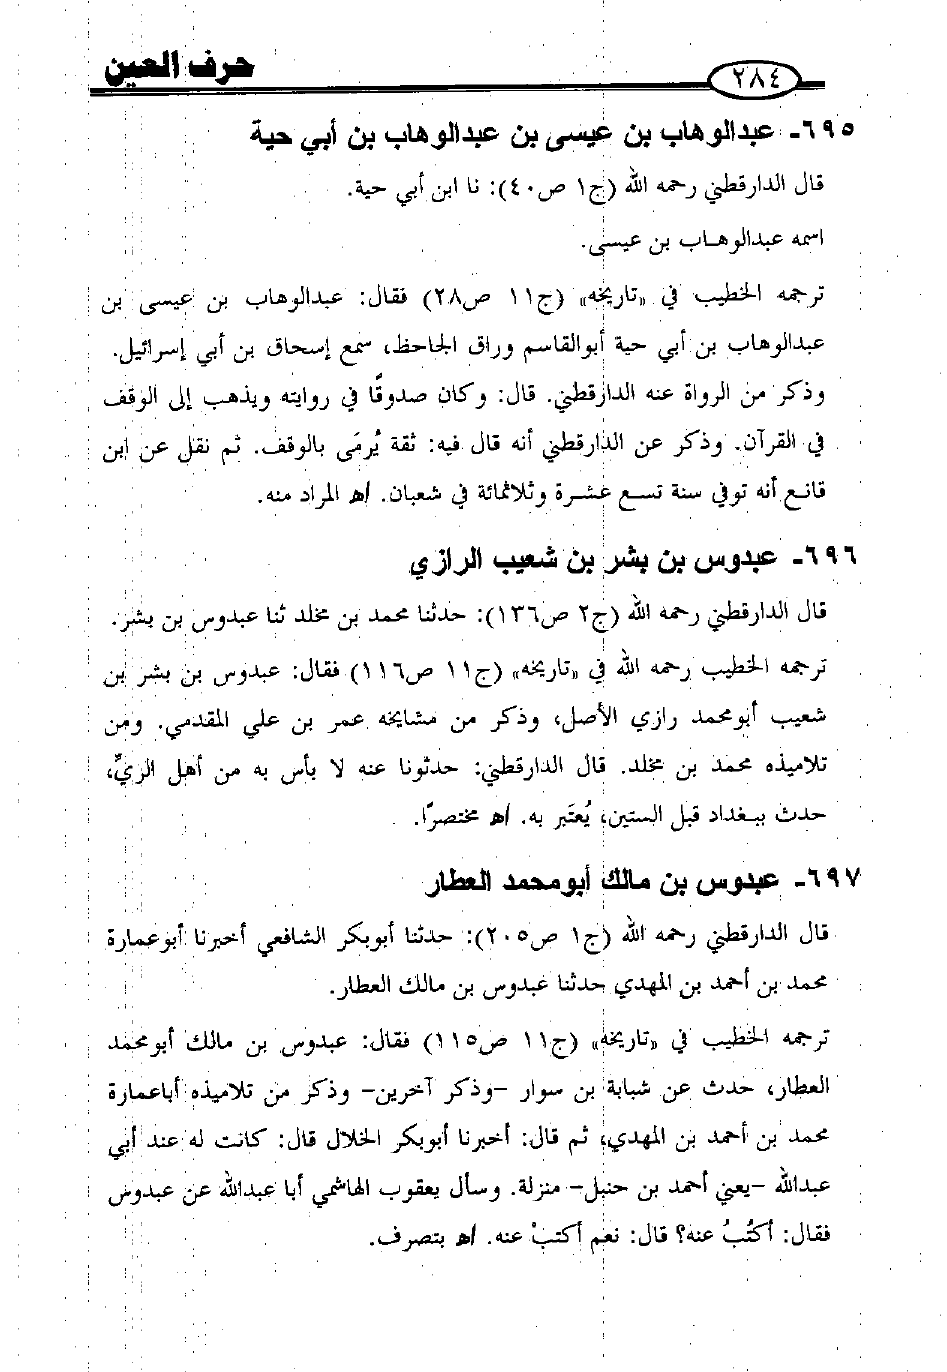 حرف العين
٢٨٤
٦٩٥- عبدالوهاب بن عيسى بن عبدالوهاب بن أبي حية
قال الدارقطني رحمه الله (ج١ ص٤٠): نا ابن أبي حية.
اسمه عبدالوهـاب بن عيسى.
ترجمه الخطيب في «تاريخه» (ج١١ ص٢٨) فقال: عبدالوهاب بن عيسى بن
عبدالوهاب بن أبي حية أبوالقاسم وراق الجاحظ، سمع إسحاق بن أبي إسرائيل.
وذكر من الرواة عنه الدارقطني. قال: وكان صدوقًا في روايته ويذهب إلى الوقف
في القرآن. وذكر عن الدارقطني أنه قال فيه: ثقة يُرمَى بالوقف. ثم نقل عن ابن
قانـع أنه توفي سنة تسـع عشـرة وثلاثمائة في شعبان. اﻫ المراد منه.
٦٩٦- عبدوس بن بشر بن شعيب الرازي
قال الدارقطني رحمه الله (ج٢ ص١٣٦): حدثنا محمد بن مخلد ثنا عبدوس بن بشر.
ترجمه الخطيب رحمه الله في «تاريخه» (ج١١ ص١١٦) فقال: عبدوس بن بشر بن
شعيب أبومحمد رازي الأصل، وذكر من مشايخه عمر بن علي المقدمي. ومن
تلاميذه محمد بن مخلد. قال الدارقطني: حدثونا عنه لا بأس به من أهل الريِّ،
حدث ببـغداد قبل الستين، يُعتَبر به. اﻫ مختصرًا.
٦٩٧- عبدوس بن مالك أبومحمد العطار
قال الدارقطني رحمه الله (ج١ ص٢٠٥): حدثنا أبوبكر الشافعي أخبرنا أبوعمارة
محمد بن أحمد بن المهدي حدثنا عبدوس بن مالك العطار.
ترجمه الخطيب في «تاريخه» (ج١١ ص١١٥) فقال: عبدوس بن مالك أبومحمد
العطار، حدث عن شبابة بن سوار -وذكر آخرين- وذكر من تلاميذه أباعمارة
محمد بن أحمد بن المهدي، ثم قال: أخبرنا أبوبكر الخلال قال: كانت له عند أبي
عبدالله -يعني أحمد بن حنبل- منزلة. وسأل يعقوب الهاشمي أبا عبدالله عن عبدوس
فقال: أكتُبُ عنه؟ قال: نعم أكتبْ عنه. اﻫ بتصرف.